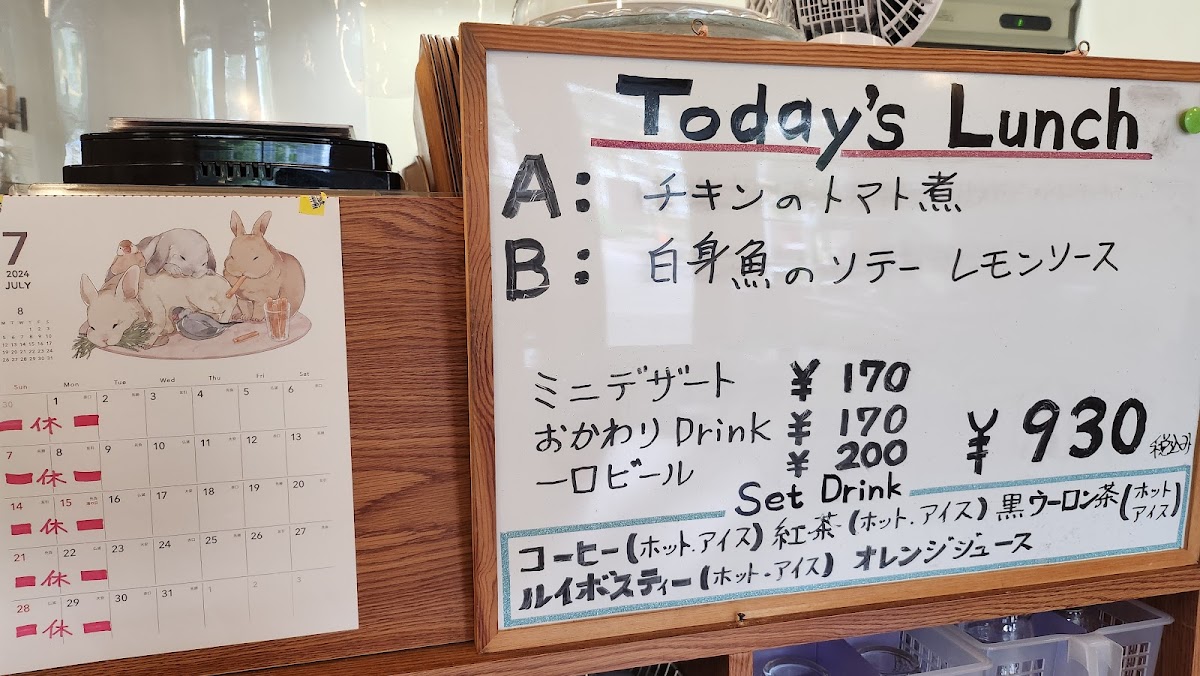 Today's Lunch
A: チキンのトマト煮
B: 白身魚のソテー レモンソース
ミニデザート ¥170
おかわりDrink ¥170
一口ビール ¥200
¥930 税込み
Set Drink
コーヒー(ホット.アイス) 紅茶(ホット.アイス) 黒ウーロン茶(ホット アイス)
ルイボスティー(ホット・アイス) オレンジジュース
7
2024
JULY
8
M T W T F S S
1 2 3 4
5 6 7 8 9 10
12 13 14 15 16 17
19 20 21 22 23 24
26 27 28 29 30 31
Sun Mon Tue Wed Thu Fri Sat
30 1 2 3 4 5 6
休
7 8 9 10 11 12 13
休
14 15 16 17 18 19 20
休
21 22 23 24 25 26 27
休
28 29 30 31 1 2 3
休